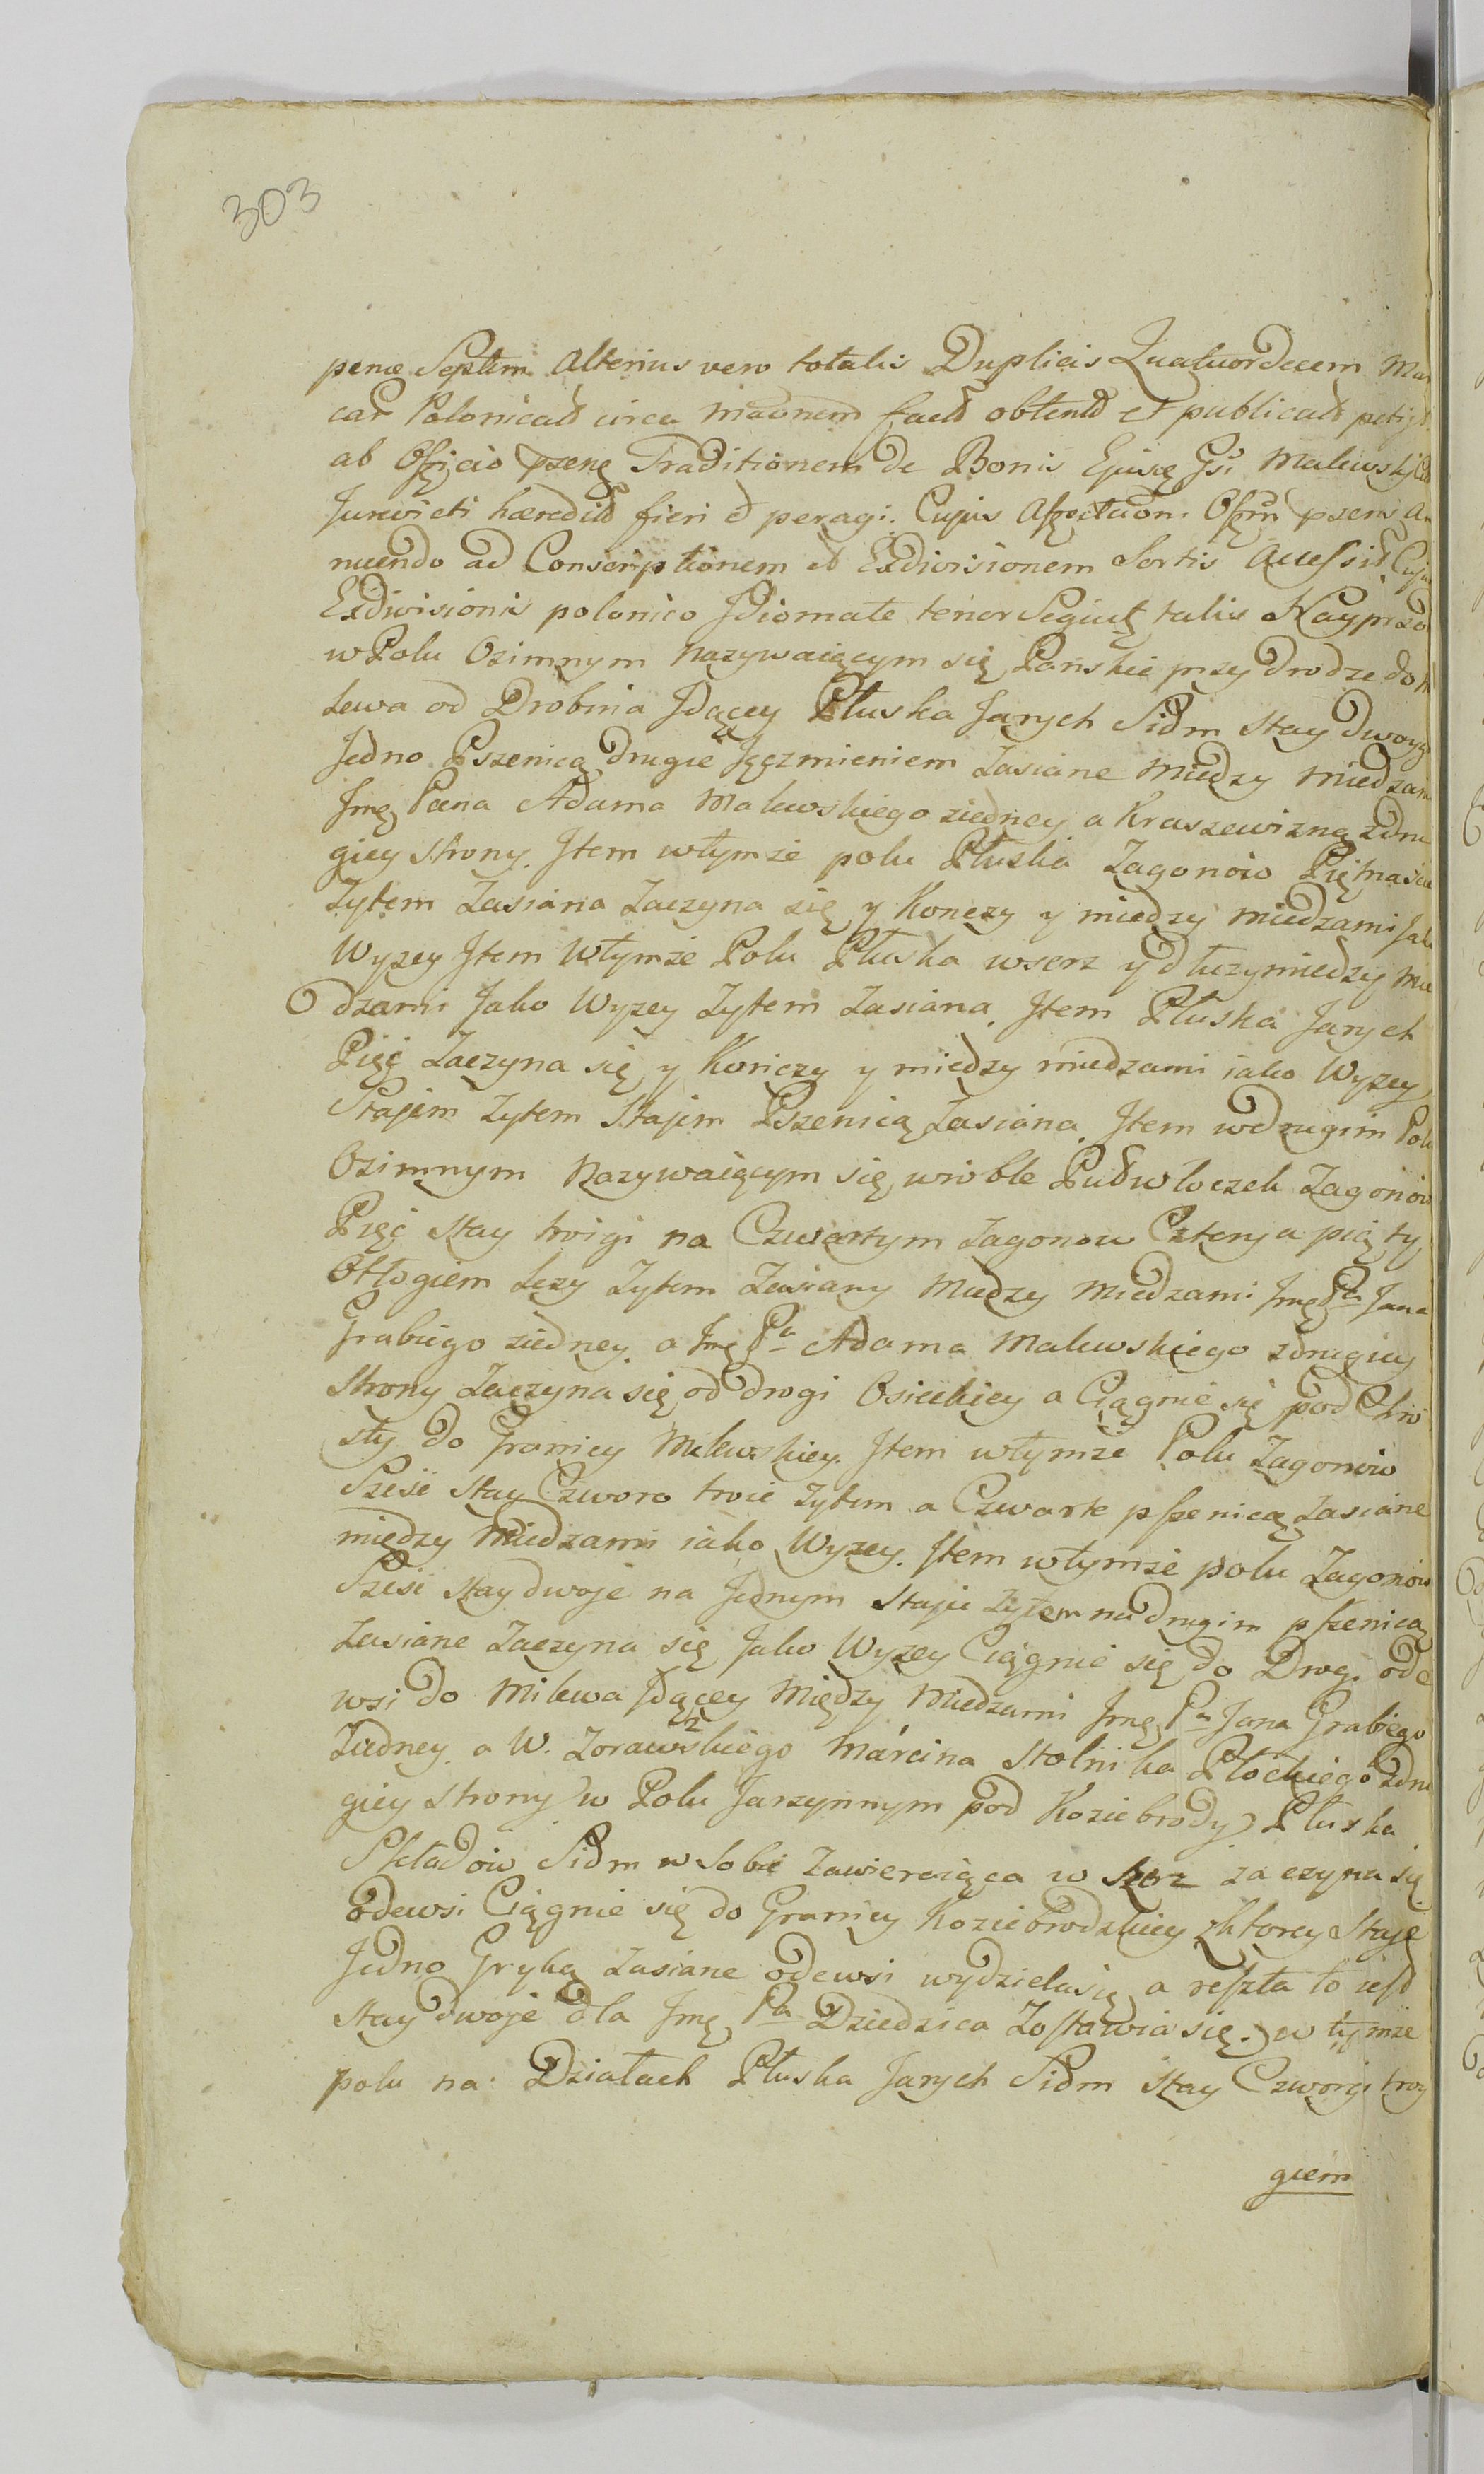 303
penæ Septem Alterius vero totalis Duplicis Quatuordecem Mar
car Polonicalð circa maõnem factð obtentð et publicatð petijt
ab Officio pzenę Traditionem de Bonis Ejuscę Gsi Malewskj
Jurevicti hæredið fieri et peragi. Cujus Affectaõni Offm pzens An
nuendo ad Conscriptionem et Exdivisionem Sortis Accessit, Cujus
Exdivisionis polonico Jdiomate tenor Sequitę talis Nayprzod
w Polu Ozimnym Nazywaiącym się Pańskie przy drodze do
Lewa od Drobina Jdącey Płuska Jarych Siðm stay dwoygi
Jedno Pszenicą drugie Jęczmieniem Zasiane między miedzami
Jmę Pana Adama Malewskiego ziedney a Kraszewizną zdru
giey strony. Jtem wtymze polu Płuska Zagonow Piętnascie
Zytem Zasiana Zaczyna się y Konczy y miedzy miedzami Jako
Wyzey Jtem Wtymże Polu Płuska wserz y dłuzymiedzy mie
dzami Jako Wyzey Zytem Zasiana. Jtem Płuska Jarych
Pięć Zaczyna się y Kończy y miedzy miedzami iako Wyzey
Stajem Zytem Stajem Pszenicą Zasiana. Jtem wdrugim Polu
Ozimnym Nazywaiącym się wroble Pułwłoczek Zagonów
Pięć stay troigi na Czwartym Zagonow Cztery a piąty
Otłogiem Lezy Zytem Zasiany Miedzy Miedzami Jmę Pa Jana
Grabiego ziedney a Jmę Pa Adama Malewskiego zdrugiey
Strony Zaczyna się od drogi Osieckiey a Ciągnie się pod Chro
sty do Granicy Milewskiey. Jtem wtymze Polu Zagonów
Sześć Stay Czworo troie zytem a Czwarte pszenicą Zasiane
między Miedzami iako Wyzey. Jtem wtymze polu Zagonów
Sześć stay dwoje na Jednym Staju zytem na drugim pszenicą
Zasiane Zaczyna się Jako Wyzey Ciągnie się do Drogi ode
wsi do Milewa Jdącey Między Miedzami Jmę Pa Jana Grabiego
Ziedney a W. Zorawskiego Marcina Stolnika Płockiego zdru
giey strony w Polu Jarzynnym pod Koziebrody Płuska
Składów Siðm w Sobie Zawieraiąca w szerz zaczyna się
odewsi Ciągnie się do Granicy Koziebrodzkiey zktorey Staje
Jedno Gryką zasiane odewsi wydziela się a reszta to iest
stay dwoje dla Jmę Pa Dziedzica Zostawia się. w tymże
polu na Działach Płuska Jarych Siðm stay Czworgi troy
giem